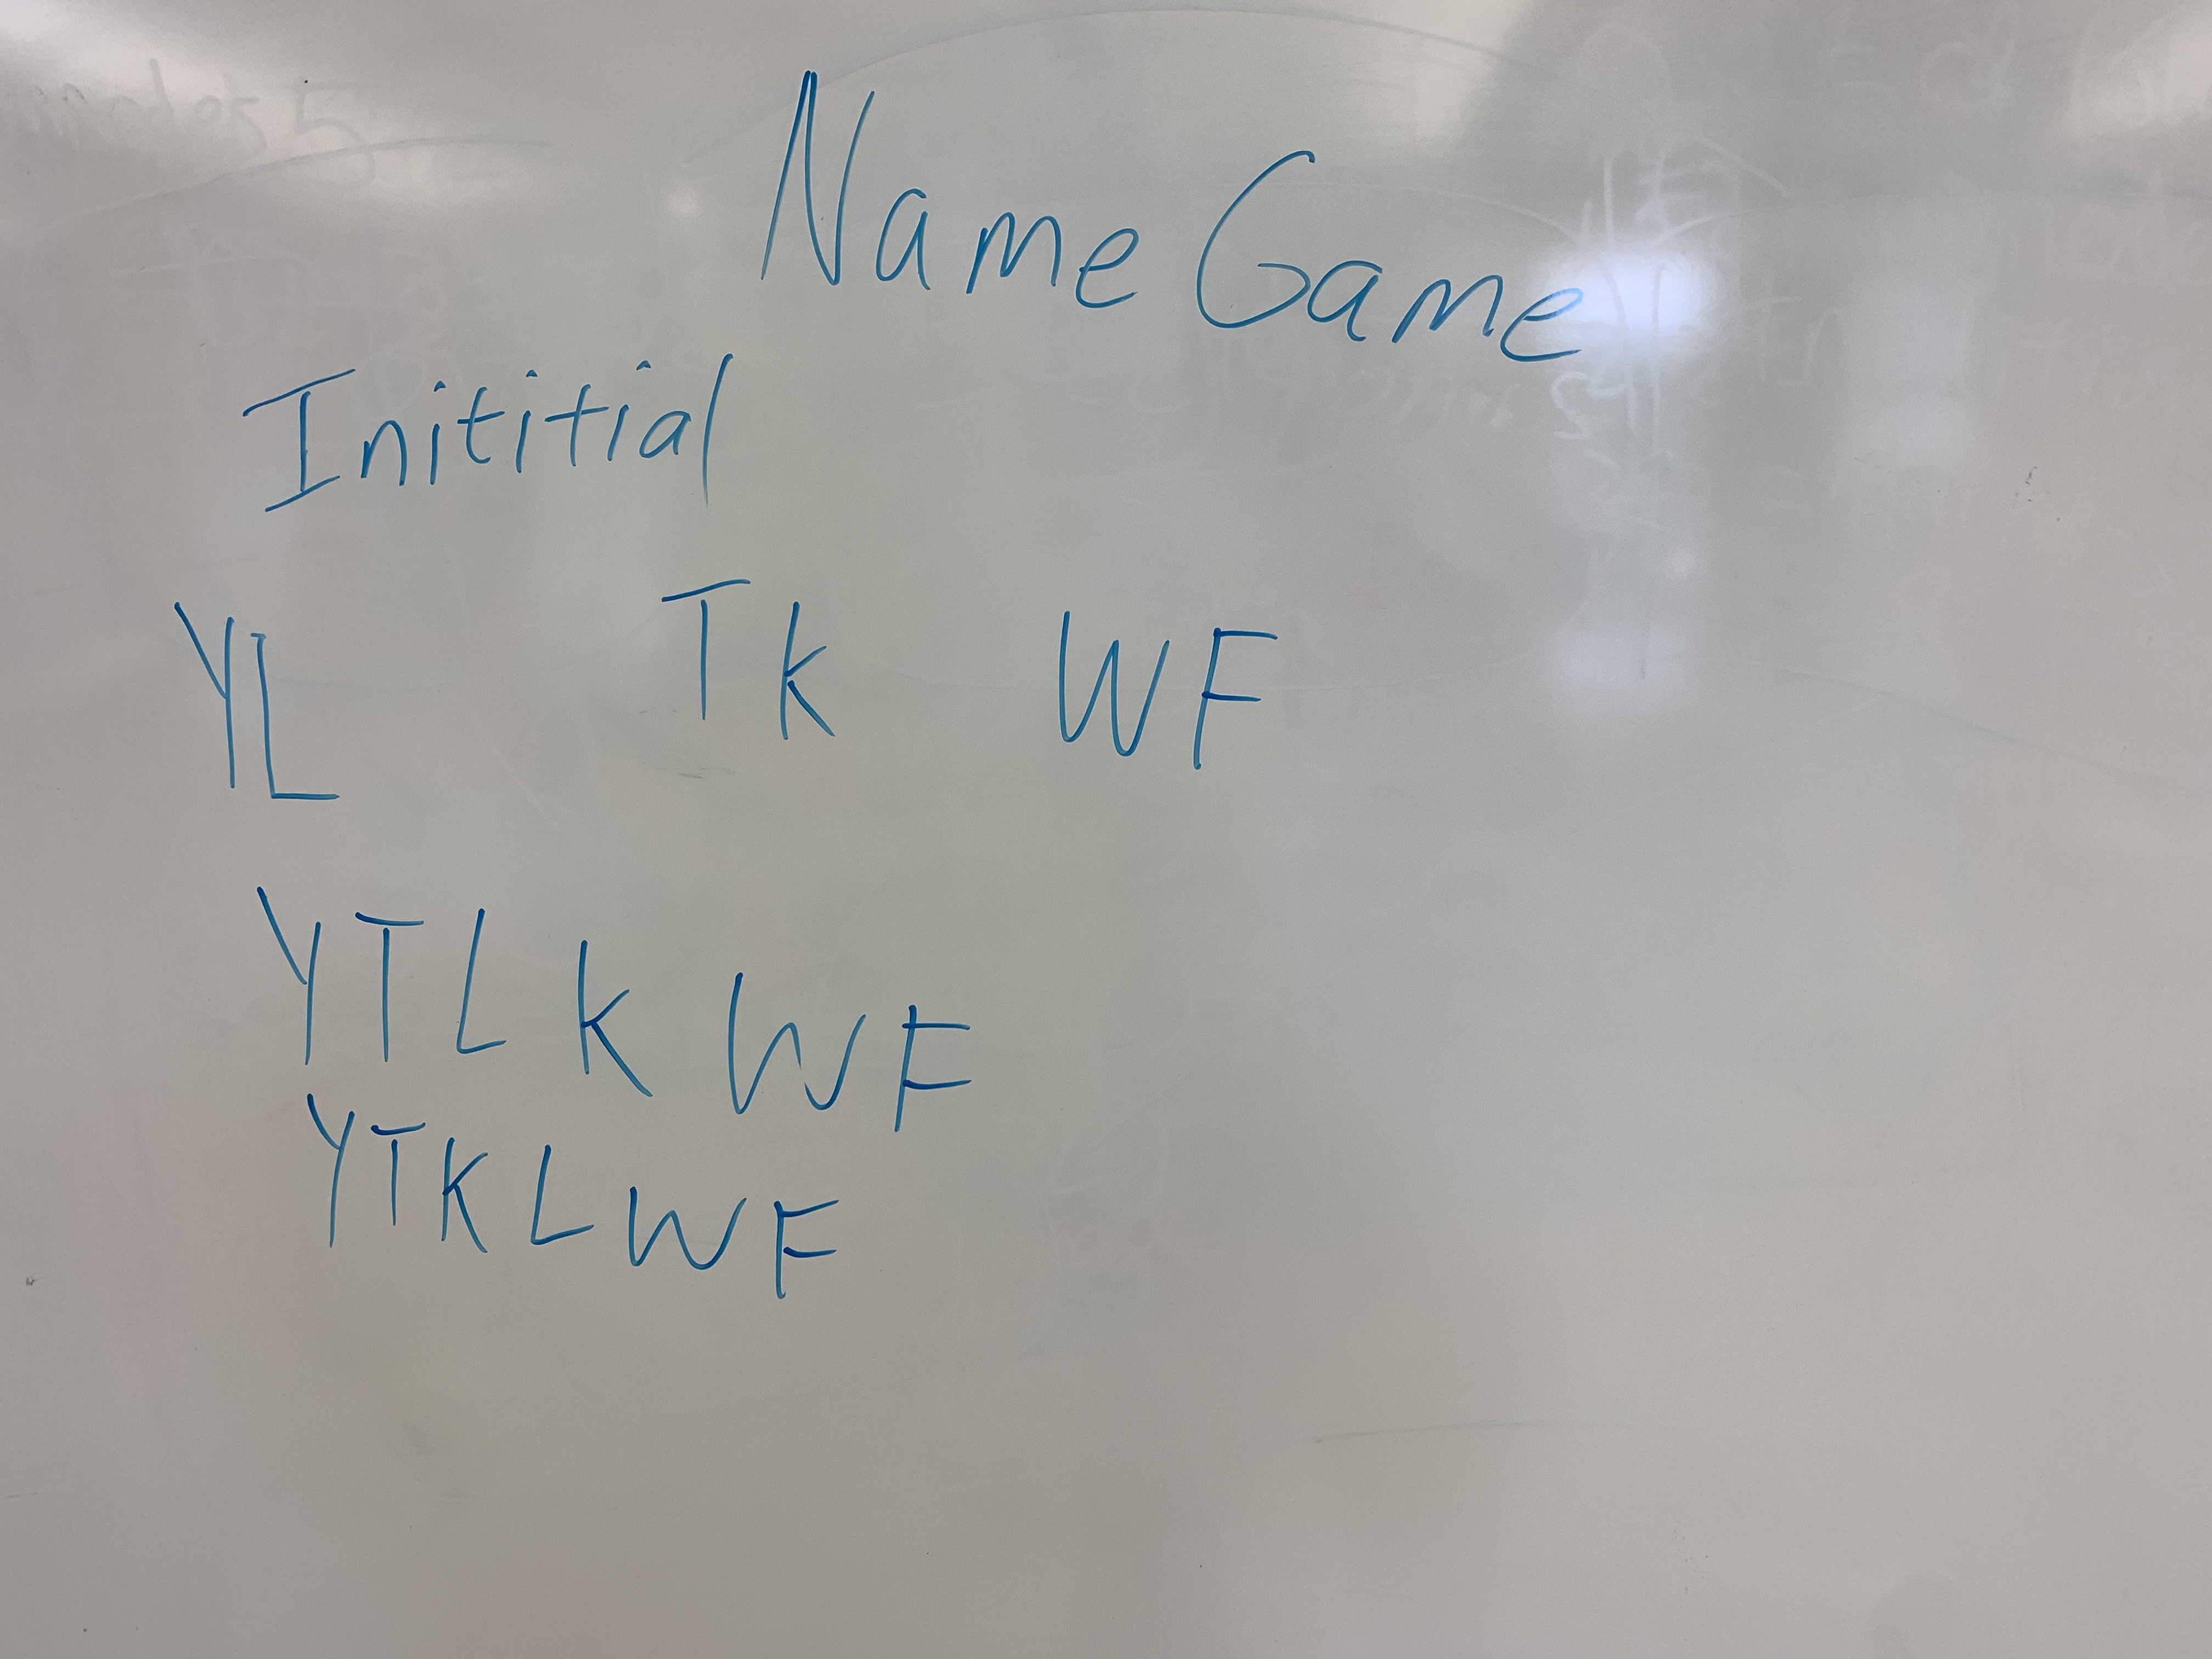 Name Game
Inititial
YL Tk WF
YTLK WF
YTKLWF